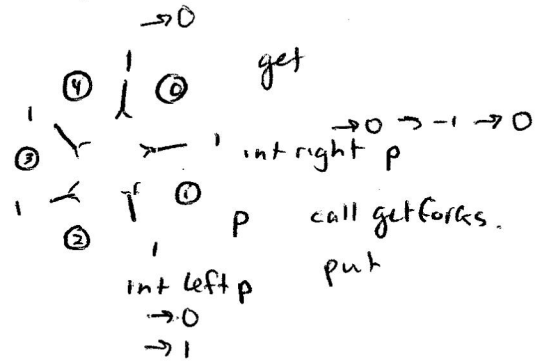 →0
1
get
④ ⓪
1
→0 → -1 → 0
③ 1 int right p
1 ① p call getforks.
② 1 put
int left p
→0
→1